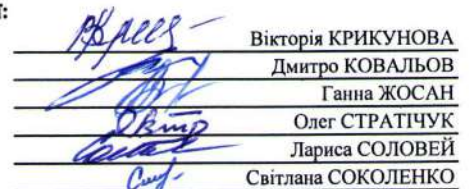 ї:
Вікторія КРИКУНОВА
Дмитро КОВАЛЬОВ
Ганна ЖОСАН
Олег СТРАТІЧУК
Лариса СОЛОВЕЙ
Світлана СОКОЛЕНКО